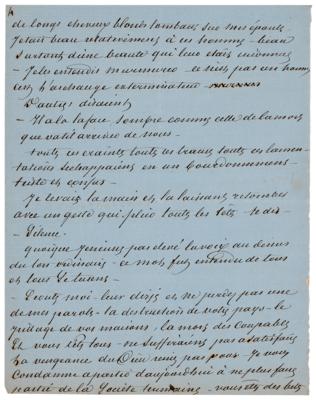 de longs cheveux blonds tombant sur mes épaules
J'etait beau relativement a ces homme – beau
surtout d'une beauté qui leur etait inconnue
– Je les entendis murmurer – ce n'est pas un homme
c'est l'archange exterminateur
D'autres disaient
– Il a la face sombre comme celle de la mort
que va-t-il arriver de nous –
toutes ces craintes toutes ces terreurs toutes ces lamen-
tations s'echappaient en un bourdonnement
triste et confus –
Je levais la main et la laissant retomber
avec un geste qui plia toutes les têtes – je dis –
– Silence –
quoique je n'eusse pas elevé la voix au dessus
du ton ordinaire – ce mot fut entendu de tous
et tous se turent –
– Ecoutez moi – leur dis-je et ne perdez pas une
de mes paroles – la destruction de votre pays – le
pillage de vos maisons – la mort des coupables
et vous l'êtes tous – ne suffiraient pas a satisfaire
la vengeance du Dieu renié par vous – Je vous
condamne a partir d'aujourd'hui a ne plus faire
partie de la Société humaine – vous êtes des bêtes